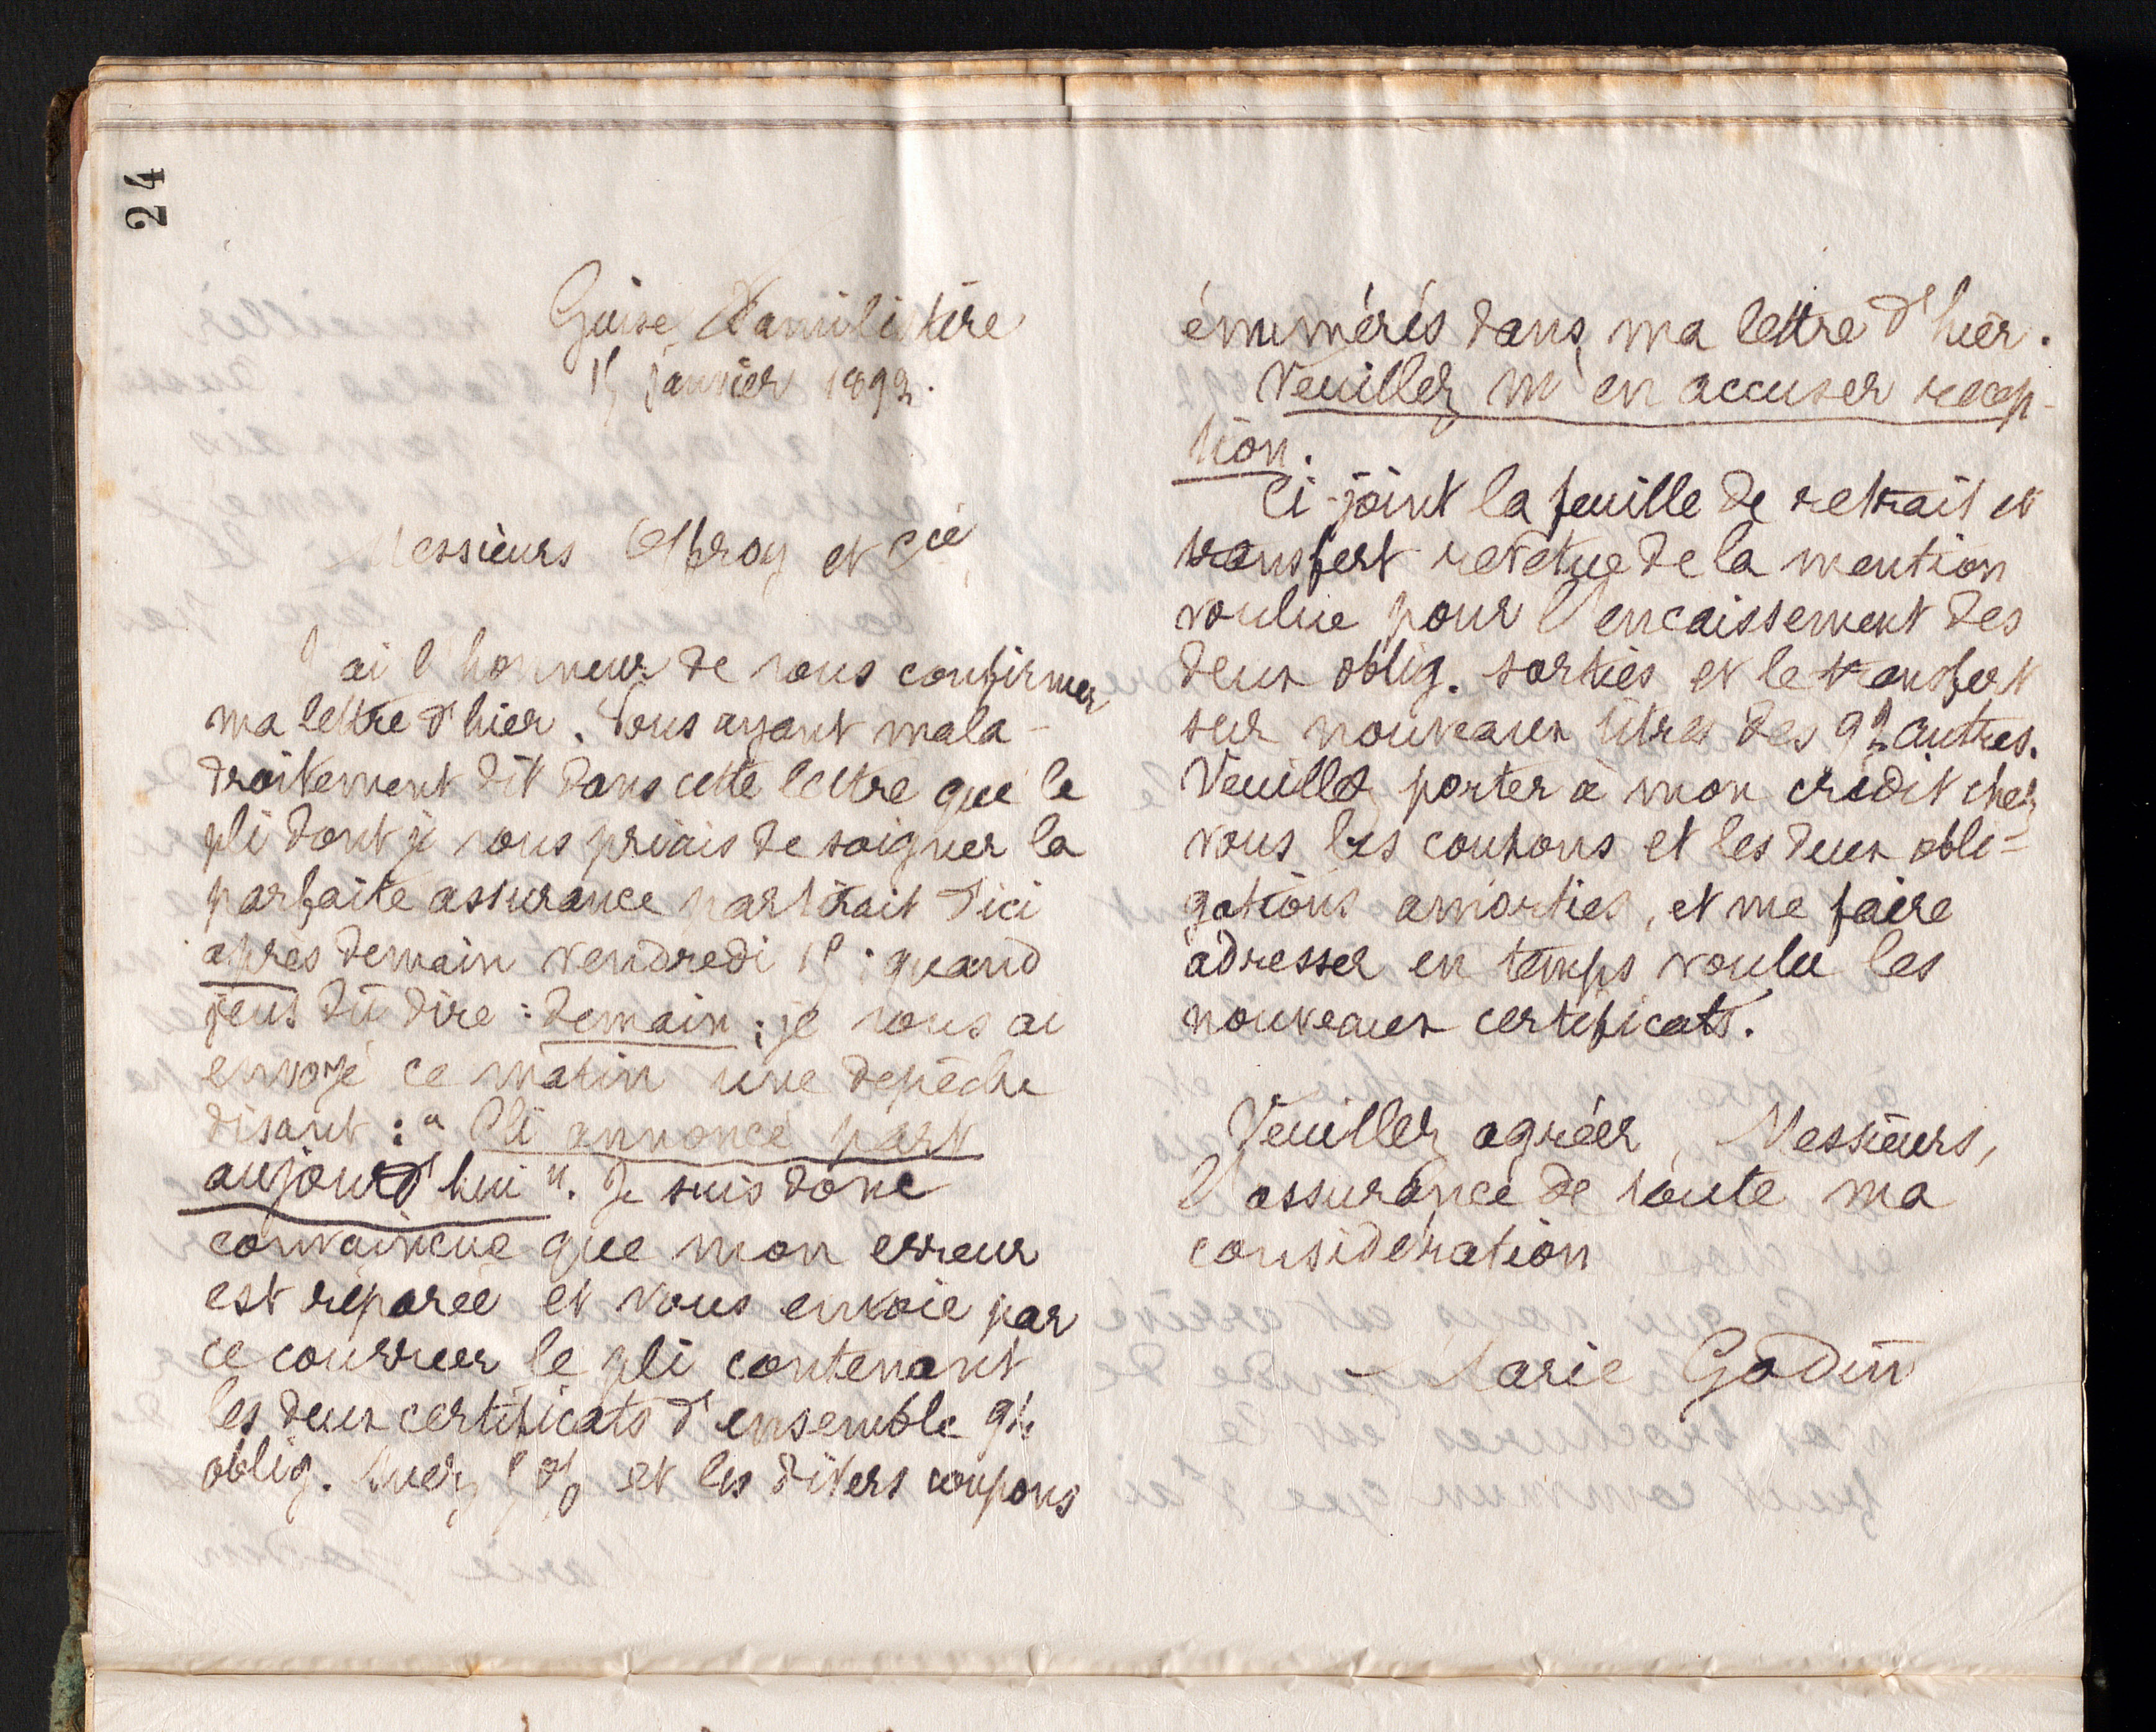 24
Guise, Familistère
15 janvier 1892.
Messieurs Offroy et Cie,
J'ai l'honneur de vous confirmer
ma lettre d'hier. Vous ayant mala-
droitement dit dans cette lettre que le
pli dont je vous priais de soigner la
parfaite assurance partirait d'ici
après demain vendredi 15 ; quand
j'eus dû dire : demain ; je vous ai
envoyé ce matin une dépêche
disant : " Pli annoncé part
aujourd'hui ". Je suis donc
convaincue que mon erreur
est réparée et vous envoie par
ce courrier le pli contenant
les deux certificats d'ensemble 94
oblig. Suez 5 % et les divers coupons
énumérés dans ma lettre d'hier.
Veuillez m'en accuser récep-
tion.
Ci-joint la feuille de retrait et
transfert revêtue de la mention
voulue pour l'encaissement des
deux oblig. sorties et le transfert
sur nouveaux titres des 92 autres.
Veuillez porter à mon crédit chez
vous les coupons et les deux obli-
gations amorties, et me faire
adresser en temps voulu les
nouveaux certificats.
Veuillez agréer, Messieurs,
l'assurance de toute ma
considération
Marie Godin